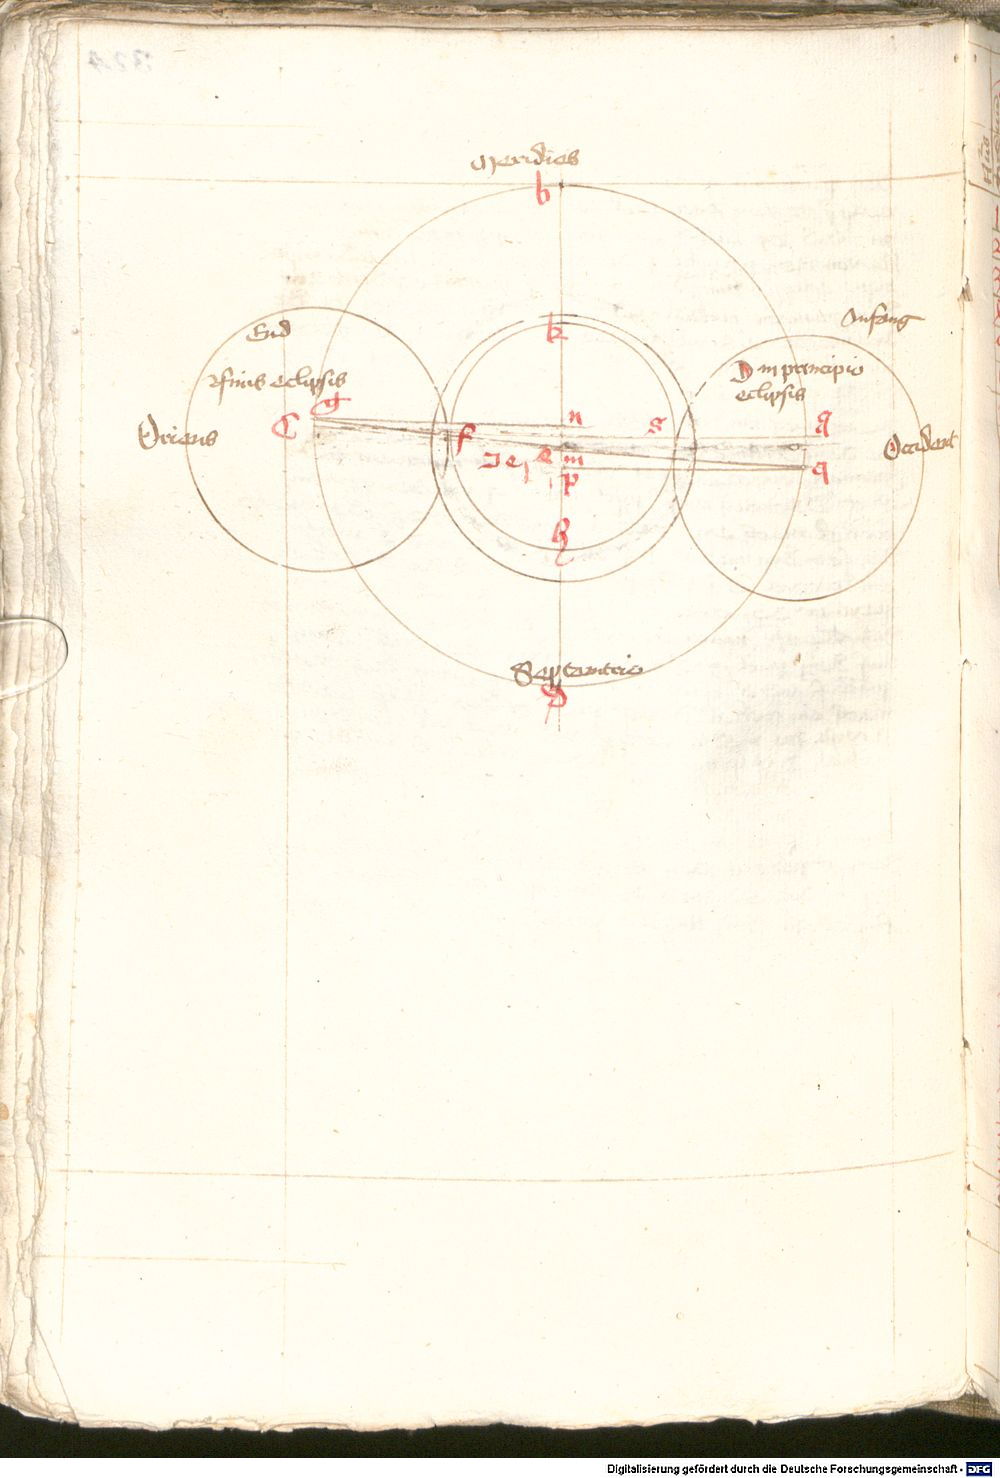 Meridies
b
k
End
finis eclipsis
g
C
Oriens
Anfang
D in principio
eclipsis
Occident
n
s
f
e
m
p
q
h
Septentrio
D
Digitalisierung gefördert durch die Deutsche Forschungsgemeinschaft - DFG